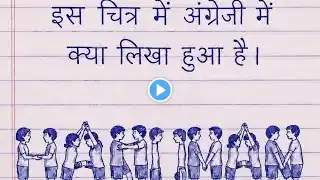 इस चित्र में अंग्रेजी में
क्या लिखा हुआ है।